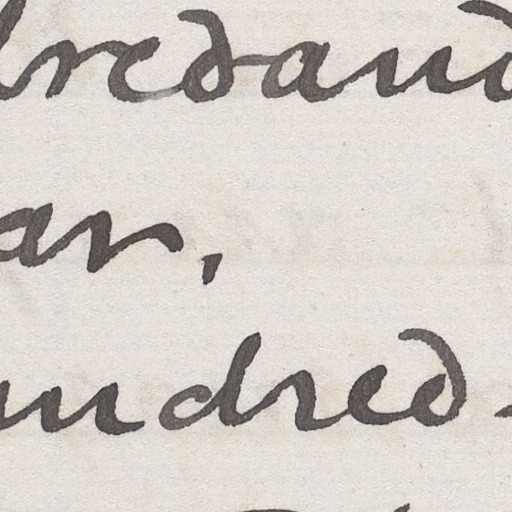 dred and
ar,
undred